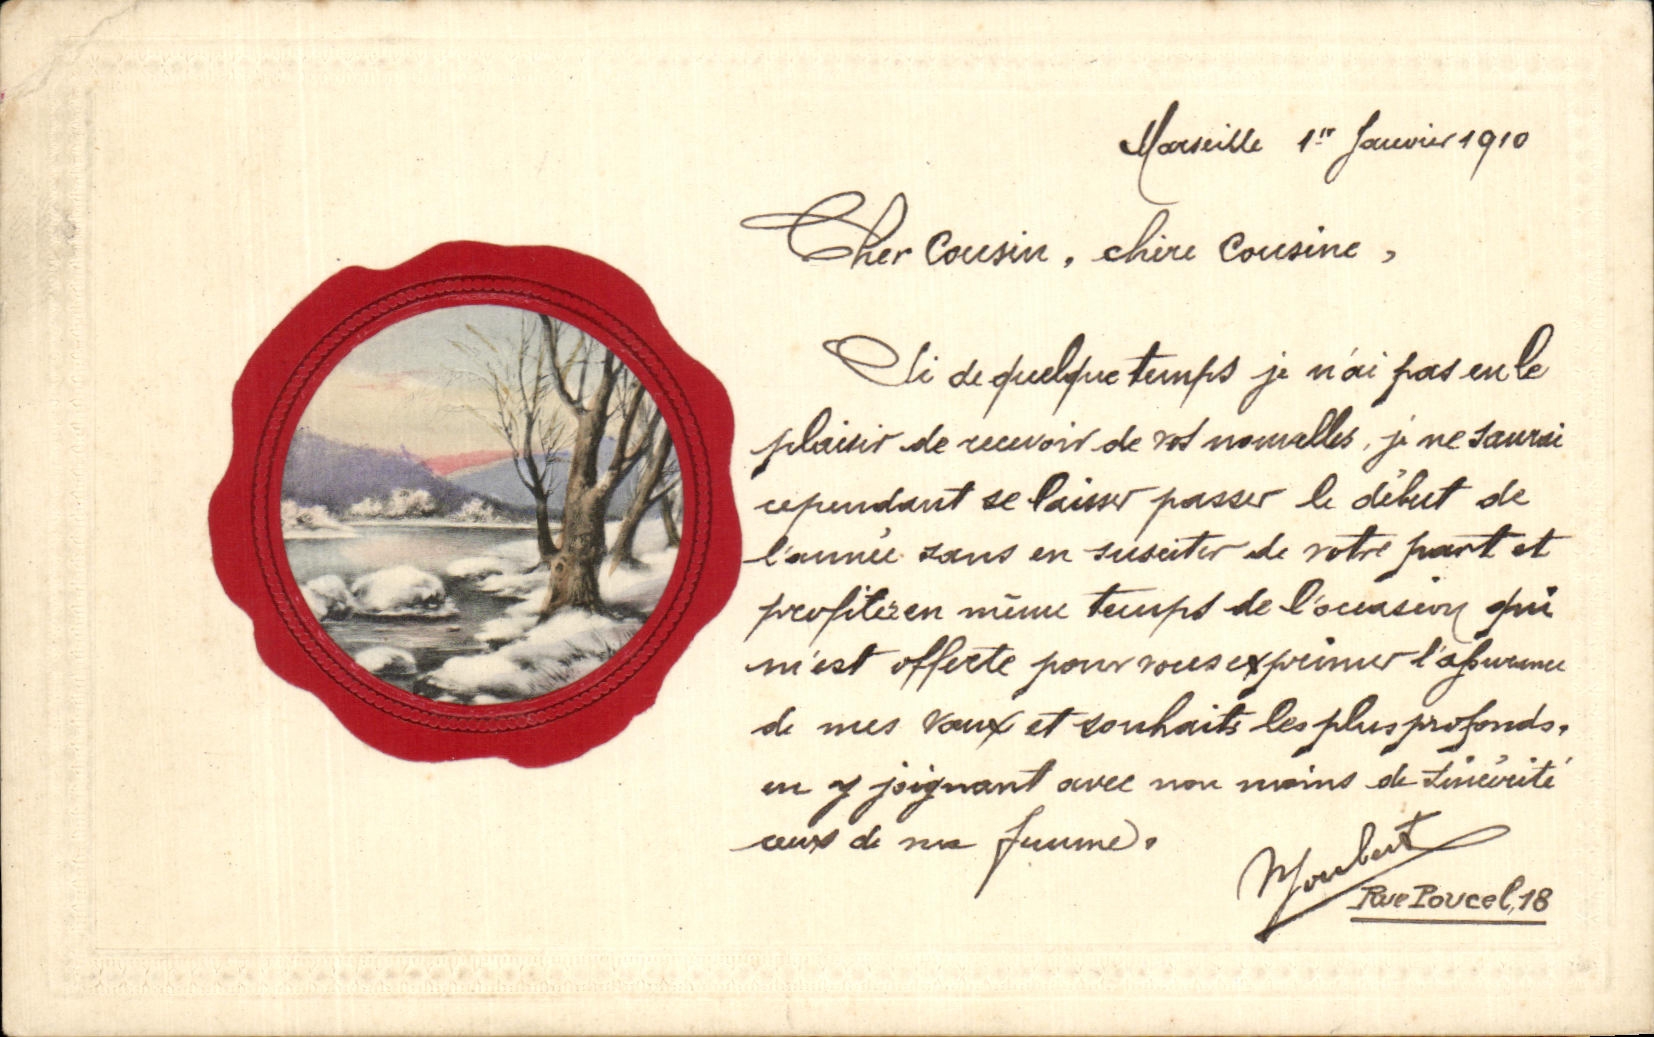 Marseille 1er Janvier 1910
Cher Cousin, chère Cousine,
Si de quelque temps je n'ai pas eu le
plaisir de recevoir de vos nouvelles, je ne saurai
cependant se laisser passer le début de
l'année sans en susciter de votre part et
profiter en même temps de l'occasion qui
m'est offerte pour vous exprimer l'assurance
de mes vœux et souhaits les plus profonds,
en y joignant avec non moins de sincérité
ceux de ma femme.
Rue Poucel, 18